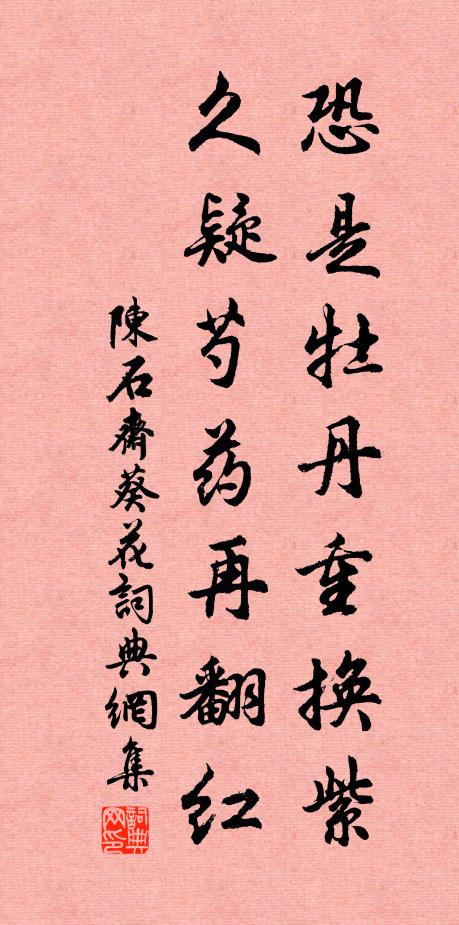 恐是牡丹重换紫
久疑芍药再翻红
陳石齋葵花詞典網集
詞典网印